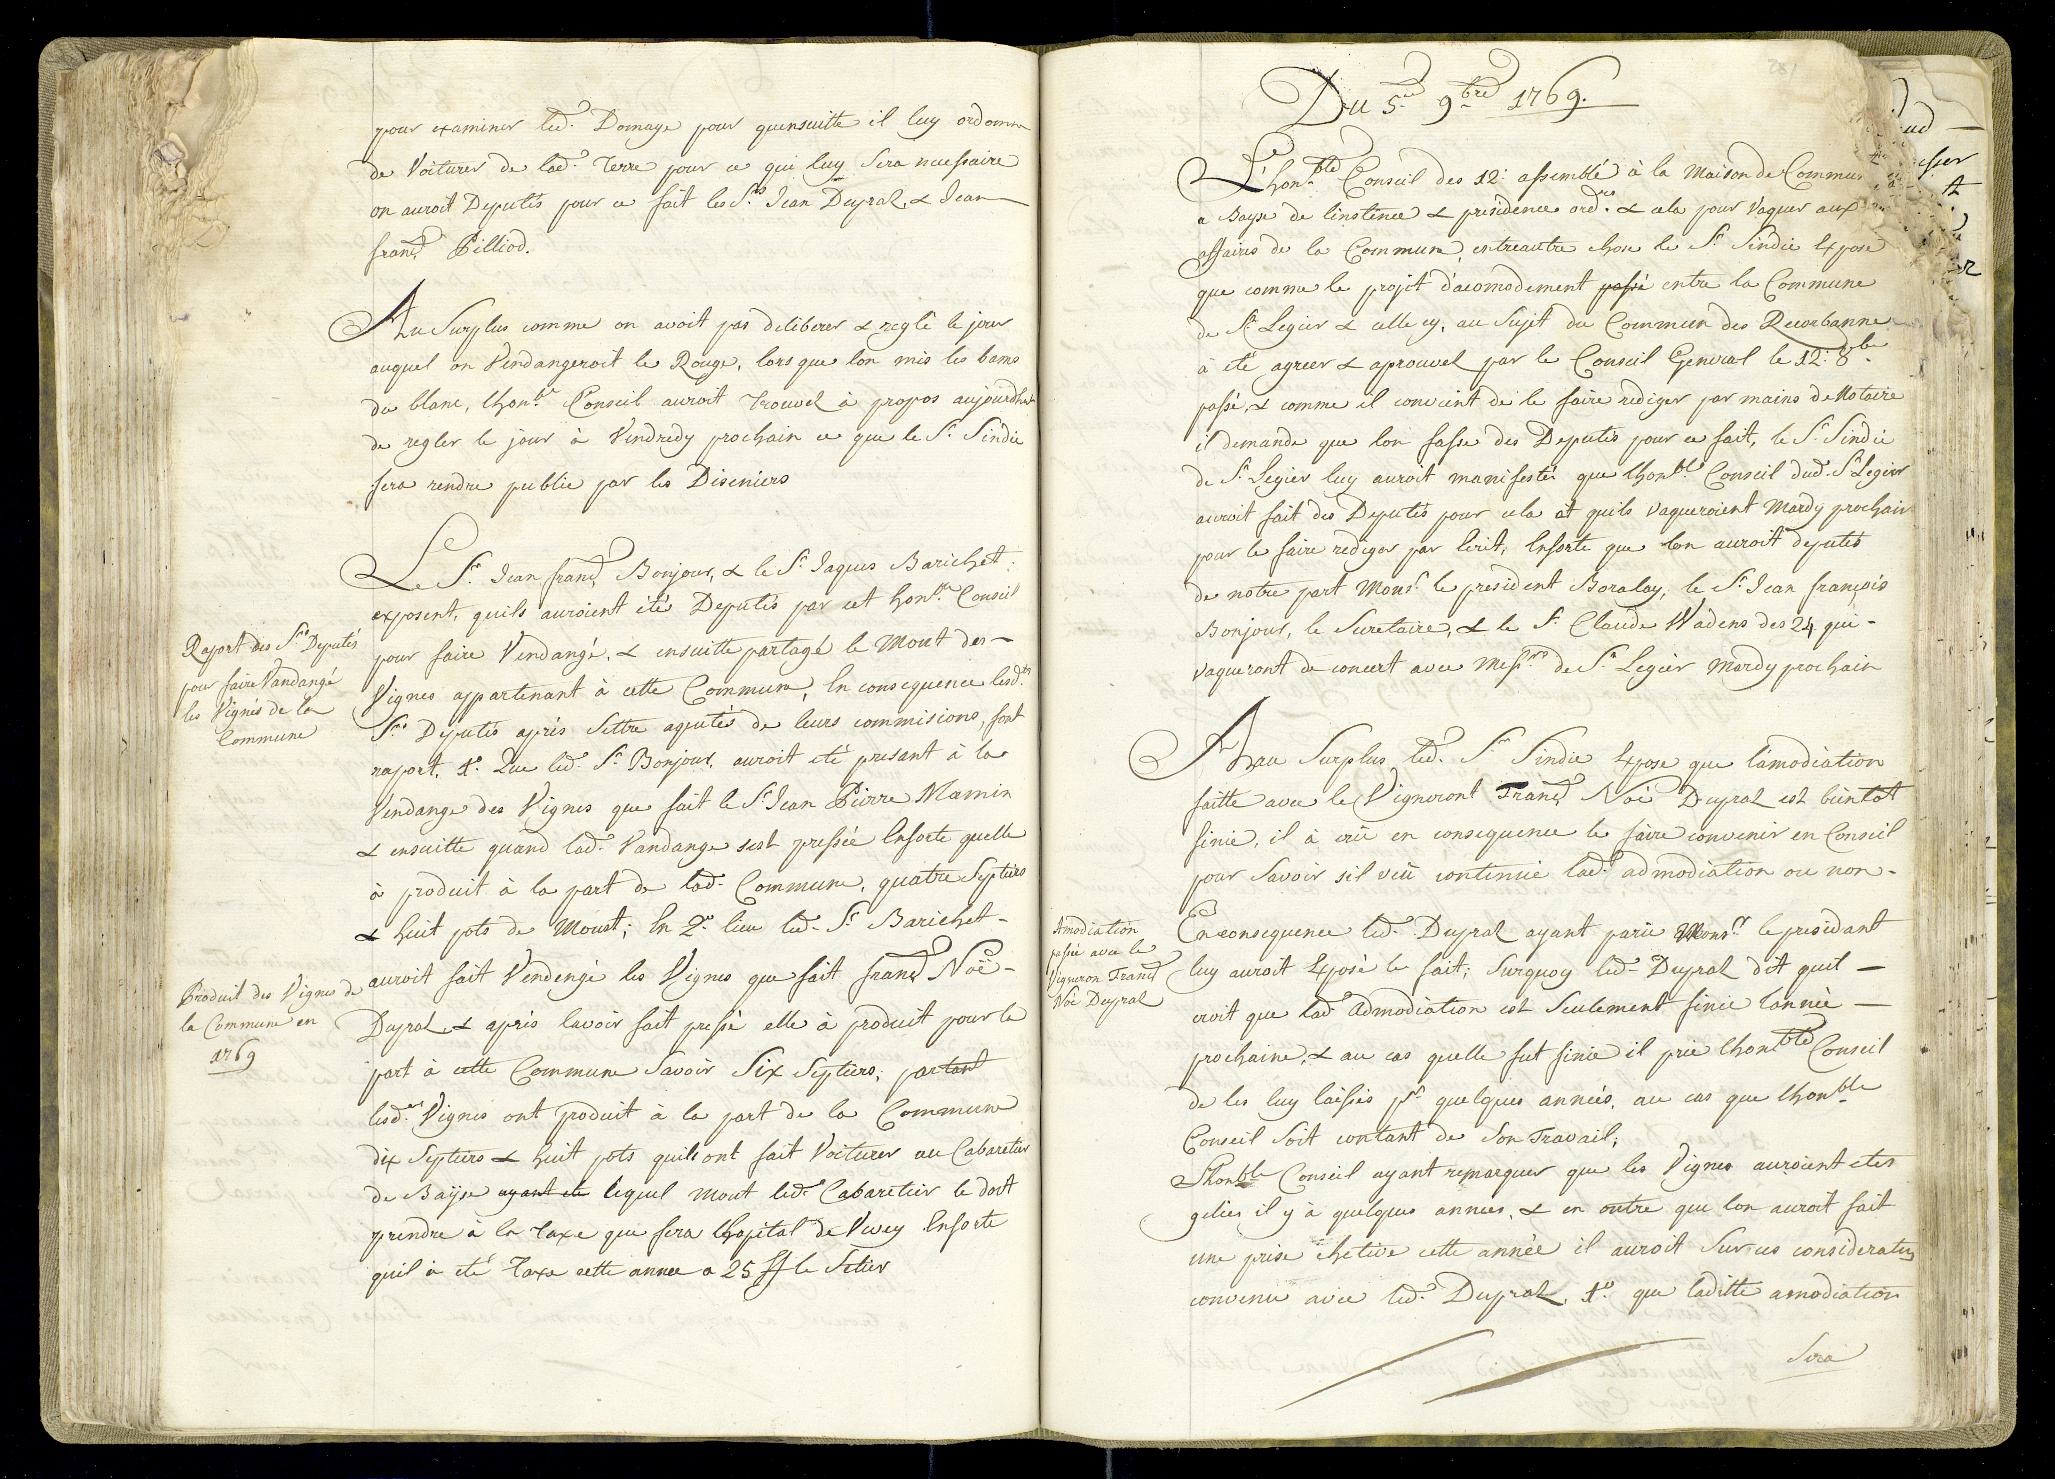 pour examiner led. Domage pour quensuitte il luy ordonne
de Voiturer de lad. Terre pour ce qui luy Sera necessaire
on auroit Deputés pour ce fait les Srs. Jean Dupraz, & Jean
franç. Pilliod.
Au Surplus comme on avoit pas déliberer & reglé le jour
auquel on Vendangeroit le Rouge, lors que lon mis les bams
du blanc, lhonble Conseil auroit Trouvez à propos aujourdhui
de regler le jour à Vendredy prochain ce que le Sr. Sindic
fera rendre publie par les Diseniers
Le Sr. Jean franç. Bonjour, & le Sr. Jaques Barichet
exposent, quils auroient étés Deputés par cet honble Conseil
Raport des Srs Deputés
pour faire Vandangé
les Vignes de la
Commune
pour faire Vendangé, & ensuitte partagé le Mout des
Vignes appartenant à cette Commune, En consequence lesd.ts
Srs Deputés aprés Settre aquités de leurs commisions, font
raport, 1o. Que led. Sr. Bonjour, auroit été presant à la
Vendange des Vignes que fait le Sr. Jean Pierre Mamin
& ensuitte quand lad. Vandange sest pressée Ensorte quelle
à produit à la part de lad. Commune, quatre Septiers
& huit pots de Moust; En 2o. lieu led. Sr. Barichet
auroit fait Vendengé les Vignes que fait franç. Noë
Produit des Vignes de
la Commune en
1769
Dupraz, & aprés lavoir fait pressé elle à produit pour la
part à cette Commune Savoir Six Septiers; partant
lesd.tes Vignes ont produit à la part de la Commune
dix Septiers & huit pots quils ont fait Voiturer au Cabaretier
de Bayse ayant été lequel mout led. Cabaretier le doit
prendre à la Taxe que fera lhopital de Vevey Ensorte
quil à été Taxe cette annee a 25 ff le Setier
Du 5me 9bre 1769.
Lhonble Conseil des 12: assemblé à la Maison de Commun
a Bayse de linstence & présidence ordres. & cela pour Vaquer aux
affaires de la Commune, entreautre chose le Sr. Sindic Exposé
que comme le projet dacomodement passé entre la Commune
de St. Legier & celle cy, au Sujet du Commun des Recorbanne
à été agreer & aprouvez par le Conseil General le 12: 8bre
passé, & comme il convient de le faire rediger par mains de Notaire
il demande que lon fasse des Deputés pour ce fait, le Sr. Sindic
de St. Legier luy auroit manifestés que lhonble Conseil dud. St. Legier
auroit fait des Deputés pour cela et quils vaqueroient Mardy prochain
pour le faire rediger par Ecrit, Ensorte que lon auroit deputés
de notre part Monsr. le president Boralay, le Sr. Jean françois
Bonjour, le Sécretaire, & le Sr. Claude Wadens des 24 qui
vaqueront de concert avec Messrs de St. Legier Mardy prochain
Au Surplus led. Sr. Sindic Expose que lamodiation
faitte avec le Vigneront Franç. Noé Dupraz est bientot
finie, il à crû en consequence le faire convenir en Conseil
pour Savoir sil veut continué lad. admodiation ou non
Amodiation
passée avec le
Vigneron Franç.
Noé Dupraz
En consequence led. Dupraz ayant parû Monsr. le président
luy auroit Exposé le fait; Surquoy led. Dupraz dit quil
croit que lad. admodiation est Seulement finie lannée
prochaine, & au cas quelle fut finie il prie lhonble Conseil
de les luy laissés pr. quelques années, au cas que lhonble
Conseil Soit contant de Son Travail;
Lhonble Conseil ayant remarquer que les Vignes auroient etes
gelies, il y à quelques annees, & en outre que lon auroit fait
une prise chetive cette année il auroit Sur ces considerations
convenu avec led. Dupraz, 1o. que laditte amodiation
Sera